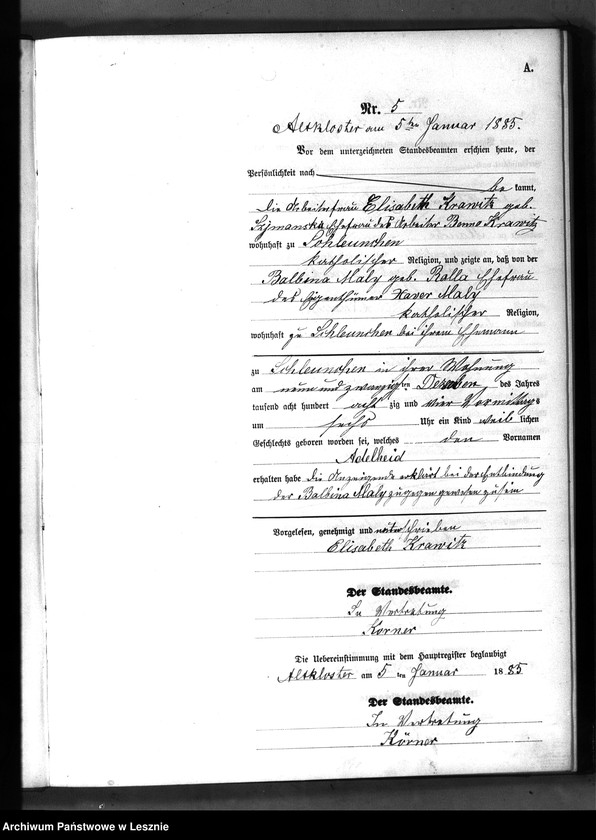 A.
Nr. 5
Altkloster am 5ten Januar 1885.
Vor dem unterzeichneten Standesbeamten erschien heute, der
Persönlichkeit nach
be kannt,
die Arbeiterfrau Elisabeth Krawitz geb.
Szymanska Ehefrau des Arbeiter Benno Krawitz
wohnhaft zu Schleunchen
katholischer Religion, und zeigte an, daß von der
Balbina Maly geb. Rolla Ehefrau
des Eigenthümer Xaver Maly
katholischer Religion,
wohnhaft zu Schleunchen bei ihrem Ehemann
zu Schleunchen in ihrer Wohnung
am neun und zwanzigsten Dezember des Jahres
tausend acht hundert acht zig und vier Vormittags
um sechs Uhr ein Kind weib lichen
Geschlechts geboren worden sei, welches den Vornamen
Adelheid
erhalten habe die Anzeigende erklärt bei der Entbindung
der Balbina Maly zugegen gewesen zu sein
Vorgelesen, genehmigt und unterschrieben
Elisabeth Krawitz
Der Standesbeamte.
In Vertretung
Körner
Die Uebereinstimmung mit dem Hauptregister beglaubigt
Altkloster am 5 ten Januar 1885
Der Standesbeamte.
In Vertretung
Körner
Archiwum Państwowe w Lesznie